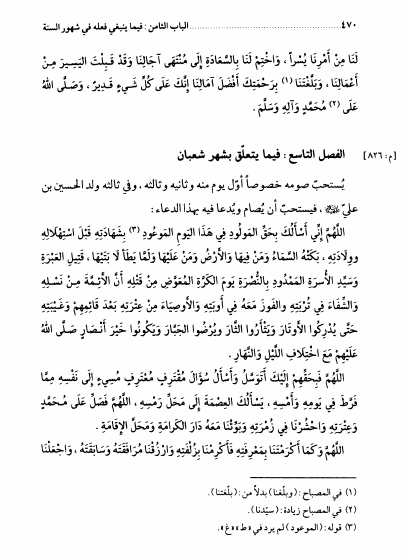 ٤٧٠ الباب الثامن : فيما ينبغي فعله في شهور السنة
لَنَا مِنْ أَمْرِنَا يُسْراً ، وَاخْتِمْ لَنَا بِالسَّعَادَةِ إِلَى مُنْتَهَى آجَالِنَا وَقَدْ قَبِلْتَ الْيَسِيرَ مِنْ
أَعْمَالِنَا ، وَبَلَّغْتَنَا (١) بِرَحْمَتِكَ أَفْضَلَ آمَالِنَا إِنَّكَ عَلَى كُلِّ شَيْءٍ قَدِيرٌ ، وَصَلَّى اللهُ
عَلَى (٢) مُحَمَّدٍ وَآلِهِ وَسَلَّمَ .
الفصل التاسع : فيما يتعلّق بشهر شعبان [م: ٨٢٦]
يُستحبّ صومه خصوصاً أوّل يوم منه وثانيه وثالثه ، وفي ثالثه ولد الحسين بن
عليّ ، فيستحبّ أن يُصام ويُدعا فيه بهذا الدعاء :
اللَّهُمَّ إِنِّي أَسْأَلُكَ بِحَقِّ المَولُودِ فِي هَذَا اليَوْمِ المَوعُودِ (٣) بِشَهَادَتِهِ قَبْلَ اسْتِهْلَالِهِ
وَوِلَادَتِهِ ، بَكَتْهُ السَّمَاءُ وَمَنْ فِيهَا وَالأَرْضُ وَمَنْ عَلَيْهَا وَلَمَّا يَطَأْ لَا بَتَيْهَا ، قَتِيلِ العَبْرَةِ
وَسَيِّدِ الأُسْرَةِ المَمْدُودِ بِالنُّصْرَةِ يَومَ الكَرَّةِ المُعَوَّضِ مِنْ قَتْلِهِ أَنَّ الأَئِمَّةَ مِنْ نَسْلِهِ
وَالشِّفَاءَ فِي تُرْبَتِهِ وَالفَوزَ مَعَهُ فِي أَوبَتِهِ وَالأَوصِيَاءَ مِنْ عِتْرَتِهِ بَعْدَ قَائِمِهِمْ وَغَيْبَتِهِ
حَتَّى يُدْرِكُوا الأَوتَارَ وَيَثْأَرُوا الثَّارَ وَيُرْضُوا الجَبَّارَ وَيَكُونُوا خَيْرَ أَنْصَارٍ صَلَّى اللهُ
عَلَيْهِمْ مَعَ اخْتِلَافِ اللَّيْلِ وَالنَّهَارِ .
اللَّهُمَّ فَبِحَقِّهِمْ إِلَيْكَ أَتَوَسَّلُ وَأَسْأَلُ سُؤَالَ مُقْتَرِفٍ مُعْتَرِفٍ مُسِيءٍ إِلَى نَفْسِهِ مِمَّا
فَرَّطَ فِي يَومِهِ وَأَمْسِهِ ، يَسْأَلُكَ العِصْمَةَ إِلَى مَحَلِّ رَمْسِهِ ، اللَّهُمَّ فَصَلِّ عَلَى مُحَمَّدٍ
وَعِتْرَتِهِ وَاحْشُرْنَا فِي زُمْرَتِهِ وَبَوِّئْنَا مَعَهُ دَارَ الكَرَامَةِ وَمَحَلَّ الإِقَامَةِ .
اللَّهُمَّ وَكَمَا أَكْرَمْتَنَا بِمَعْرِفَتِهِ فَأَكْرِمْنَا بِزُلْفَتِهِ وَارْزُقْنَا مُرَافَقَتَهُ وَسَابِقَتَهُ ، وَاجْعَلْنَا
(١) في المصباح : (وبلّغنا) بدلاً من : (بلّغتنا) .
(٢) في المصباح زيادة : (سيّدنا) .
(٣) قوله : (الموعود) لم يرد في «ط» «غ» .